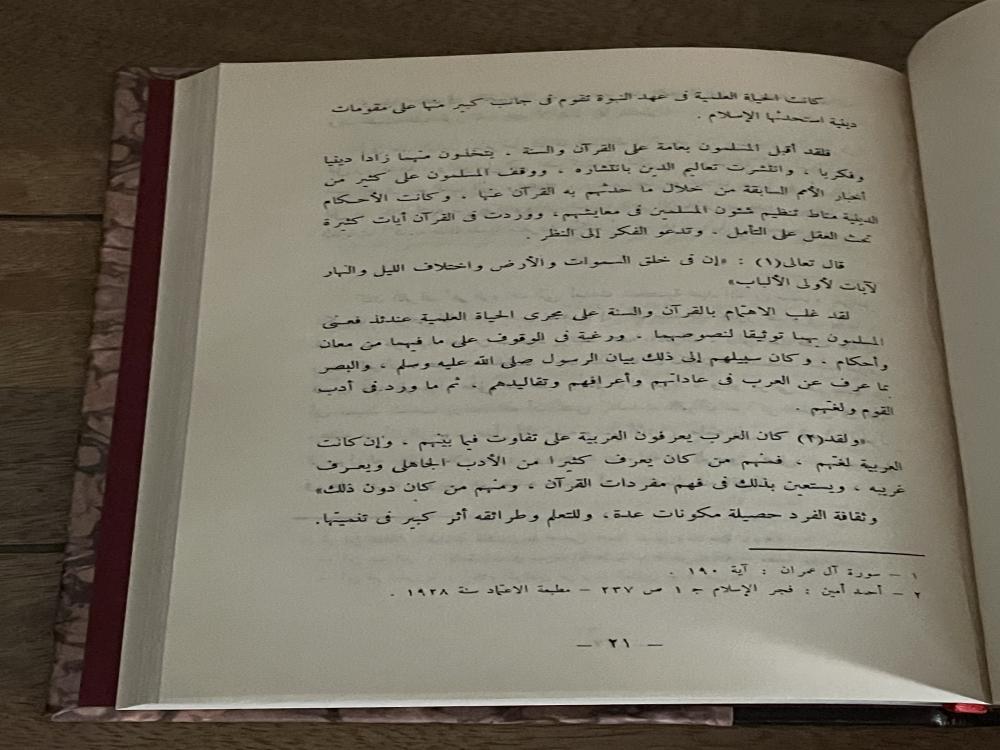 كانت الحياة العلمية فى عهد النبوة تقوم فى جانب كبير منها على مقومات
دينية استحدثها الإسلام .
فلقد أقبل المسلمون بعامة على القرآن والسنة ، يتخذون منهما زاداً دينيا
وفكريا ، وانتشرت تعاليم الدين بانتشاره ، ووقف المسلمون على كثير من
أخبار الأمم السابقة من خلال ما حدثهم به القرآن عنها ، وكانت الأحكام
الدينية مناط تنظيم شئون المسلمين فى معايشهم ، ووردت فى القرآن آيات كثيرة
تحث العقل على التأمل ، وتدعو الفكر إلى النظر .
قال تعالى(١) : «إن فى خلق السموات والأرض واختلاف الليل والنهار
لآيات لأولى الألباب»
لقد غلب الاهتمام بالقرآن والسنة على مجرى الحياة العلمية عندئذ فعنى
المسلمون بهما توثيقا لنصوصهما ، ورغبة فى الوقوف على ما فيهما من معان
وأحكام ، وكان سبيلهم إلى ذلك بيان الرسول صلى الله عليه وسلم ، والبصر
بما عرف عن العرب فى عاداتهم وأعرافهم وتقاليدهم ، ثم ما ورد فى أدب
القوم ولغتهم .
«ولقد(٢) كان العرب يعرفون العربية على تفاوت فيما بينهم ، وإن كانت
العربية لغتهم ، فمنهم من كان يعرف كثيرا من الأدب الجاهلى ويعرف
غريبه ، ويستعين بذلك فى فهم مفردات القرآن ، ومنهم من كان دون ذلك»
وثقافة الفرد حصيلة مكونات عدة ، وللتعلم وطرائقه أثر كبير فى تنميتها .
١ – سورة آل عمران : آية ١٩٠ .
٢ – أحمد أمين : فجر الإسلام جـ ١ ص ٢٣٧ – مطبعة الاعتماد سنة ١٩٢٨ .
– ٢١ –